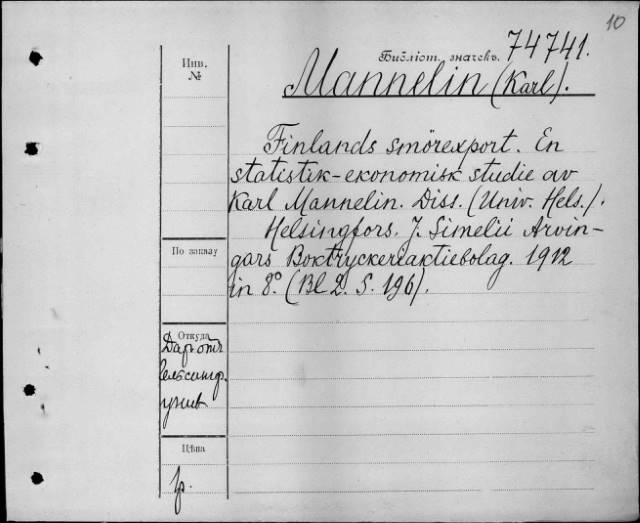 10
Библіот. значекъ. 74741.
Mannelin (Karl).
Инв.
№
Finlands smörexport. En
statistik-ekonomisk studie av
Karl Mannelin. Diss. (Univ. Hels.).
Helsingfors. J. Simelii Arvin-
gars Boktryckeriaktiebolag. 1912
in 8º. (Bl 2. S. 196).
По заказу
Откуда
Даръ отъ
Гельсингф.
унив
Цѣна
р.